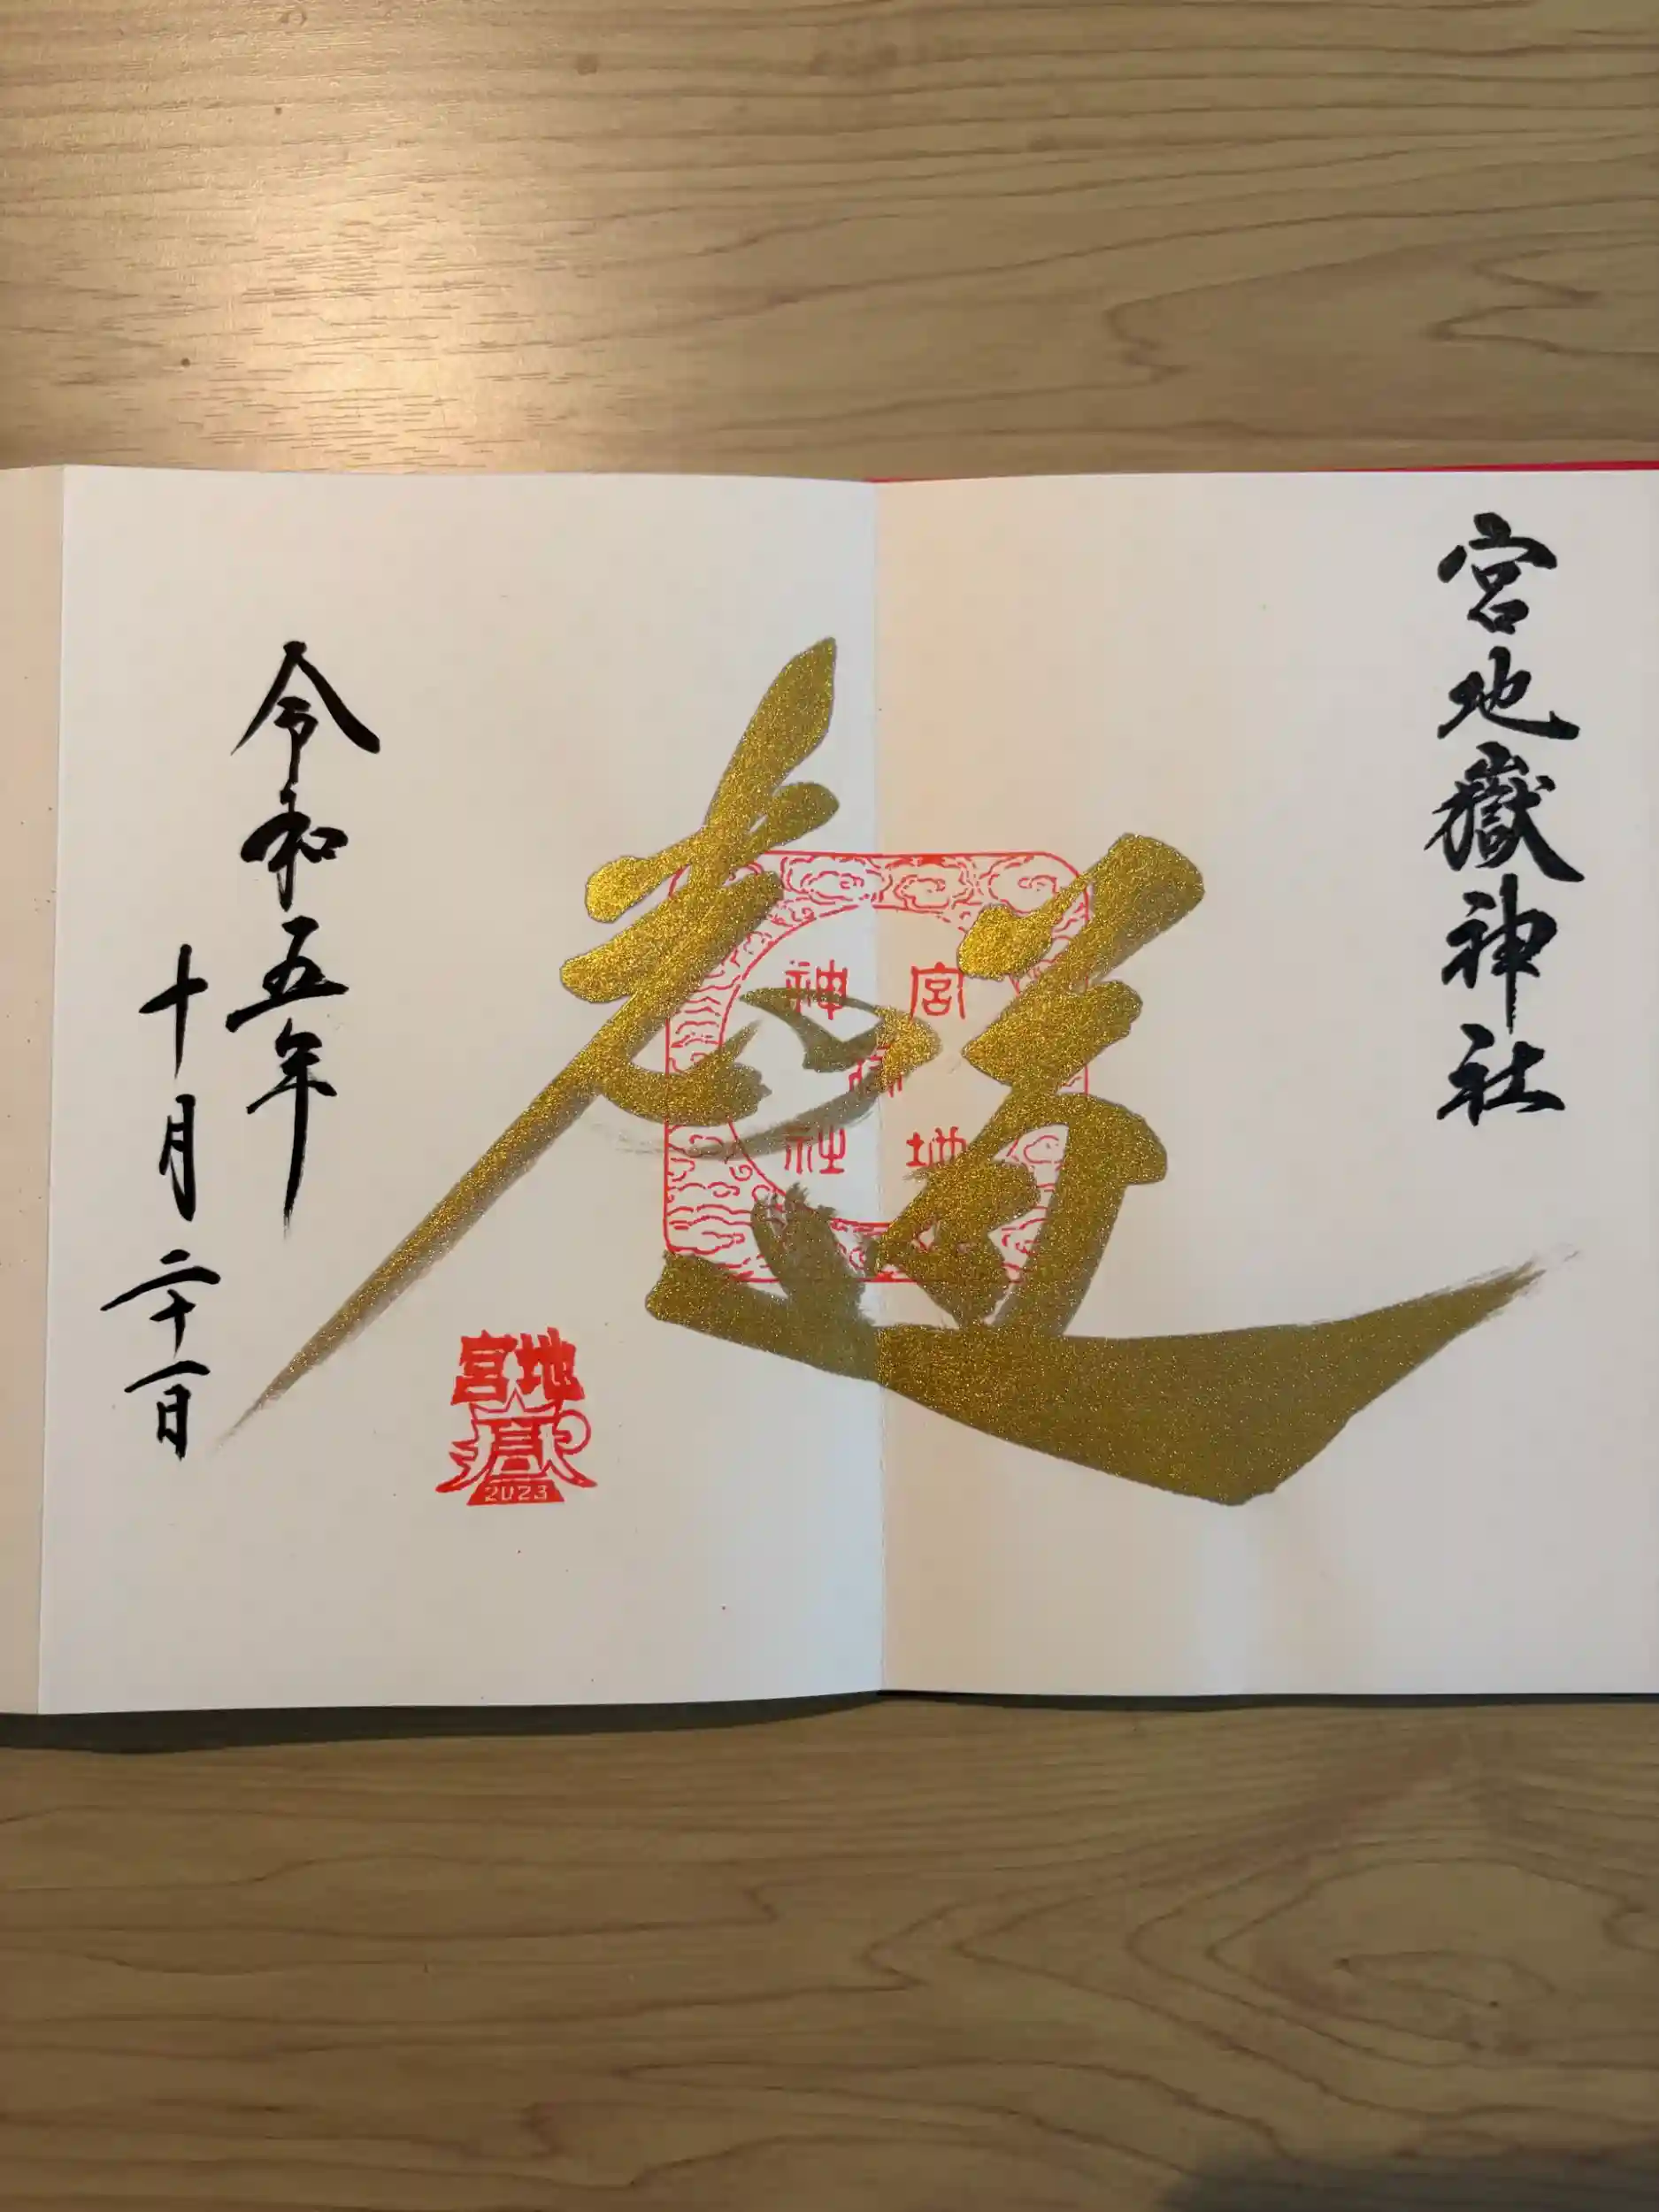 宮地嶽神社
宮地嶽神社
令和五年
十月二十一日
宮地
嶽
2023